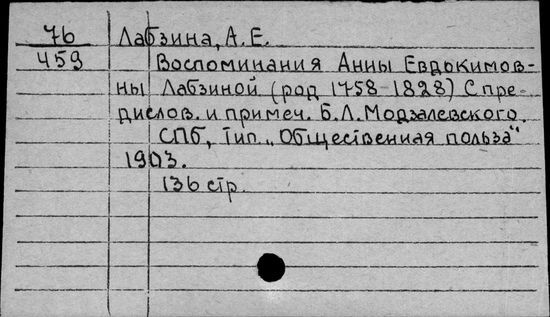 76 Лабзина, А. Е.
459 Воспоминания Анны Евдокимов-
ны Лабзиной (род 1758-1828) С пре-
дислов. и примеч. Б. Л. Модзалевского.
СПб, Тип. „Общественная польза"
1903.
136 стр.